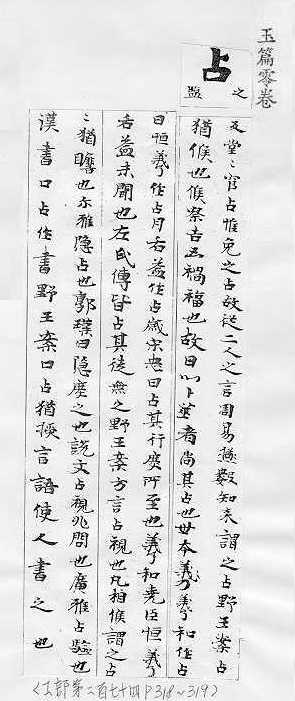 玉篇零卷
占
之
塩
反堂〻官占惟克之占故從二人之言周易極數知来謂之占野王案占
猶候也候察吉凶禍福也故曰以卜筮者尚其占也世本羲〻和作占
日恒羲作占月右益作占歲宋忠曰占其行度所至也羲和尭臣恒羲
右益未聞也左氏傳皆占其徒無之野王案方言占視也凡相候謂之占
〻猶瞻也尒雅隱占也郭璞曰隱度之也說文占視兆問也廣雅占驗也
漢書口占作書野王案口占猶授言語使人書之也
(卜部第二百七十四 P318~319)